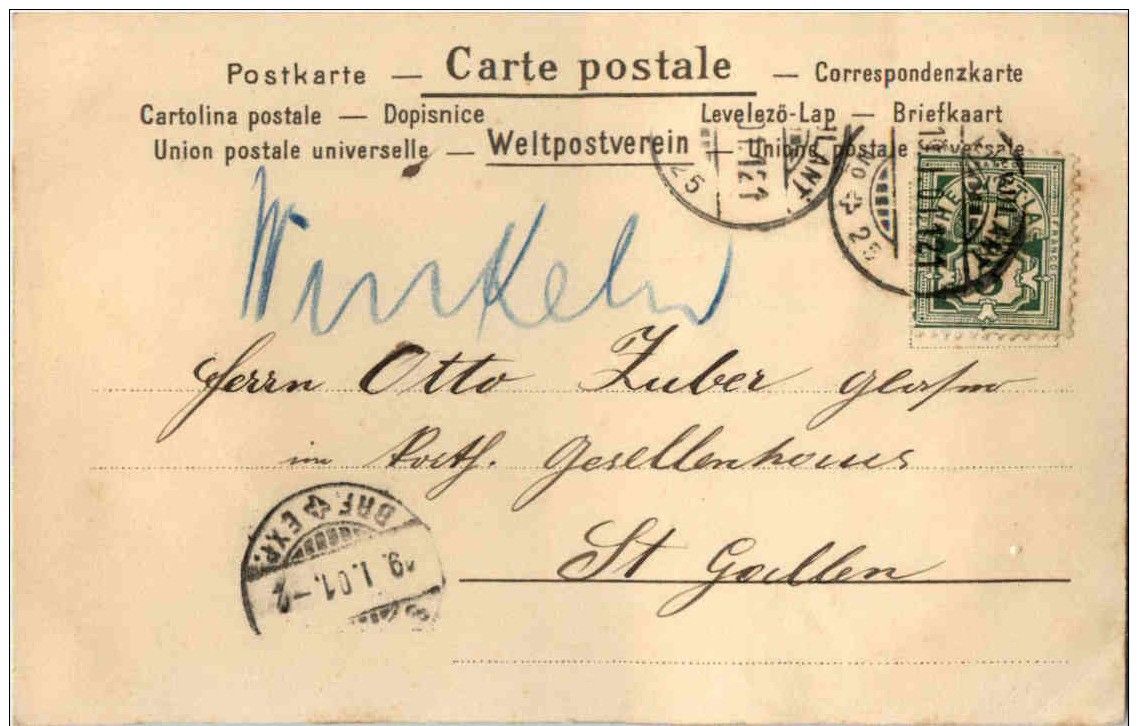 Postkarte — Carte postale — Correspondenzkarte
Cartolina postale — Dopisnice Levelező-Lap — Briefkaart
Union postale universelle — Weltpostverein — Unione postale universale
Winkeln
Herrn Otto Zuber
im Kath. Gesellenhaus
St Gallen
BRF. EXP.
9.I.01.-
HELVETIA
FRANCO
25
25